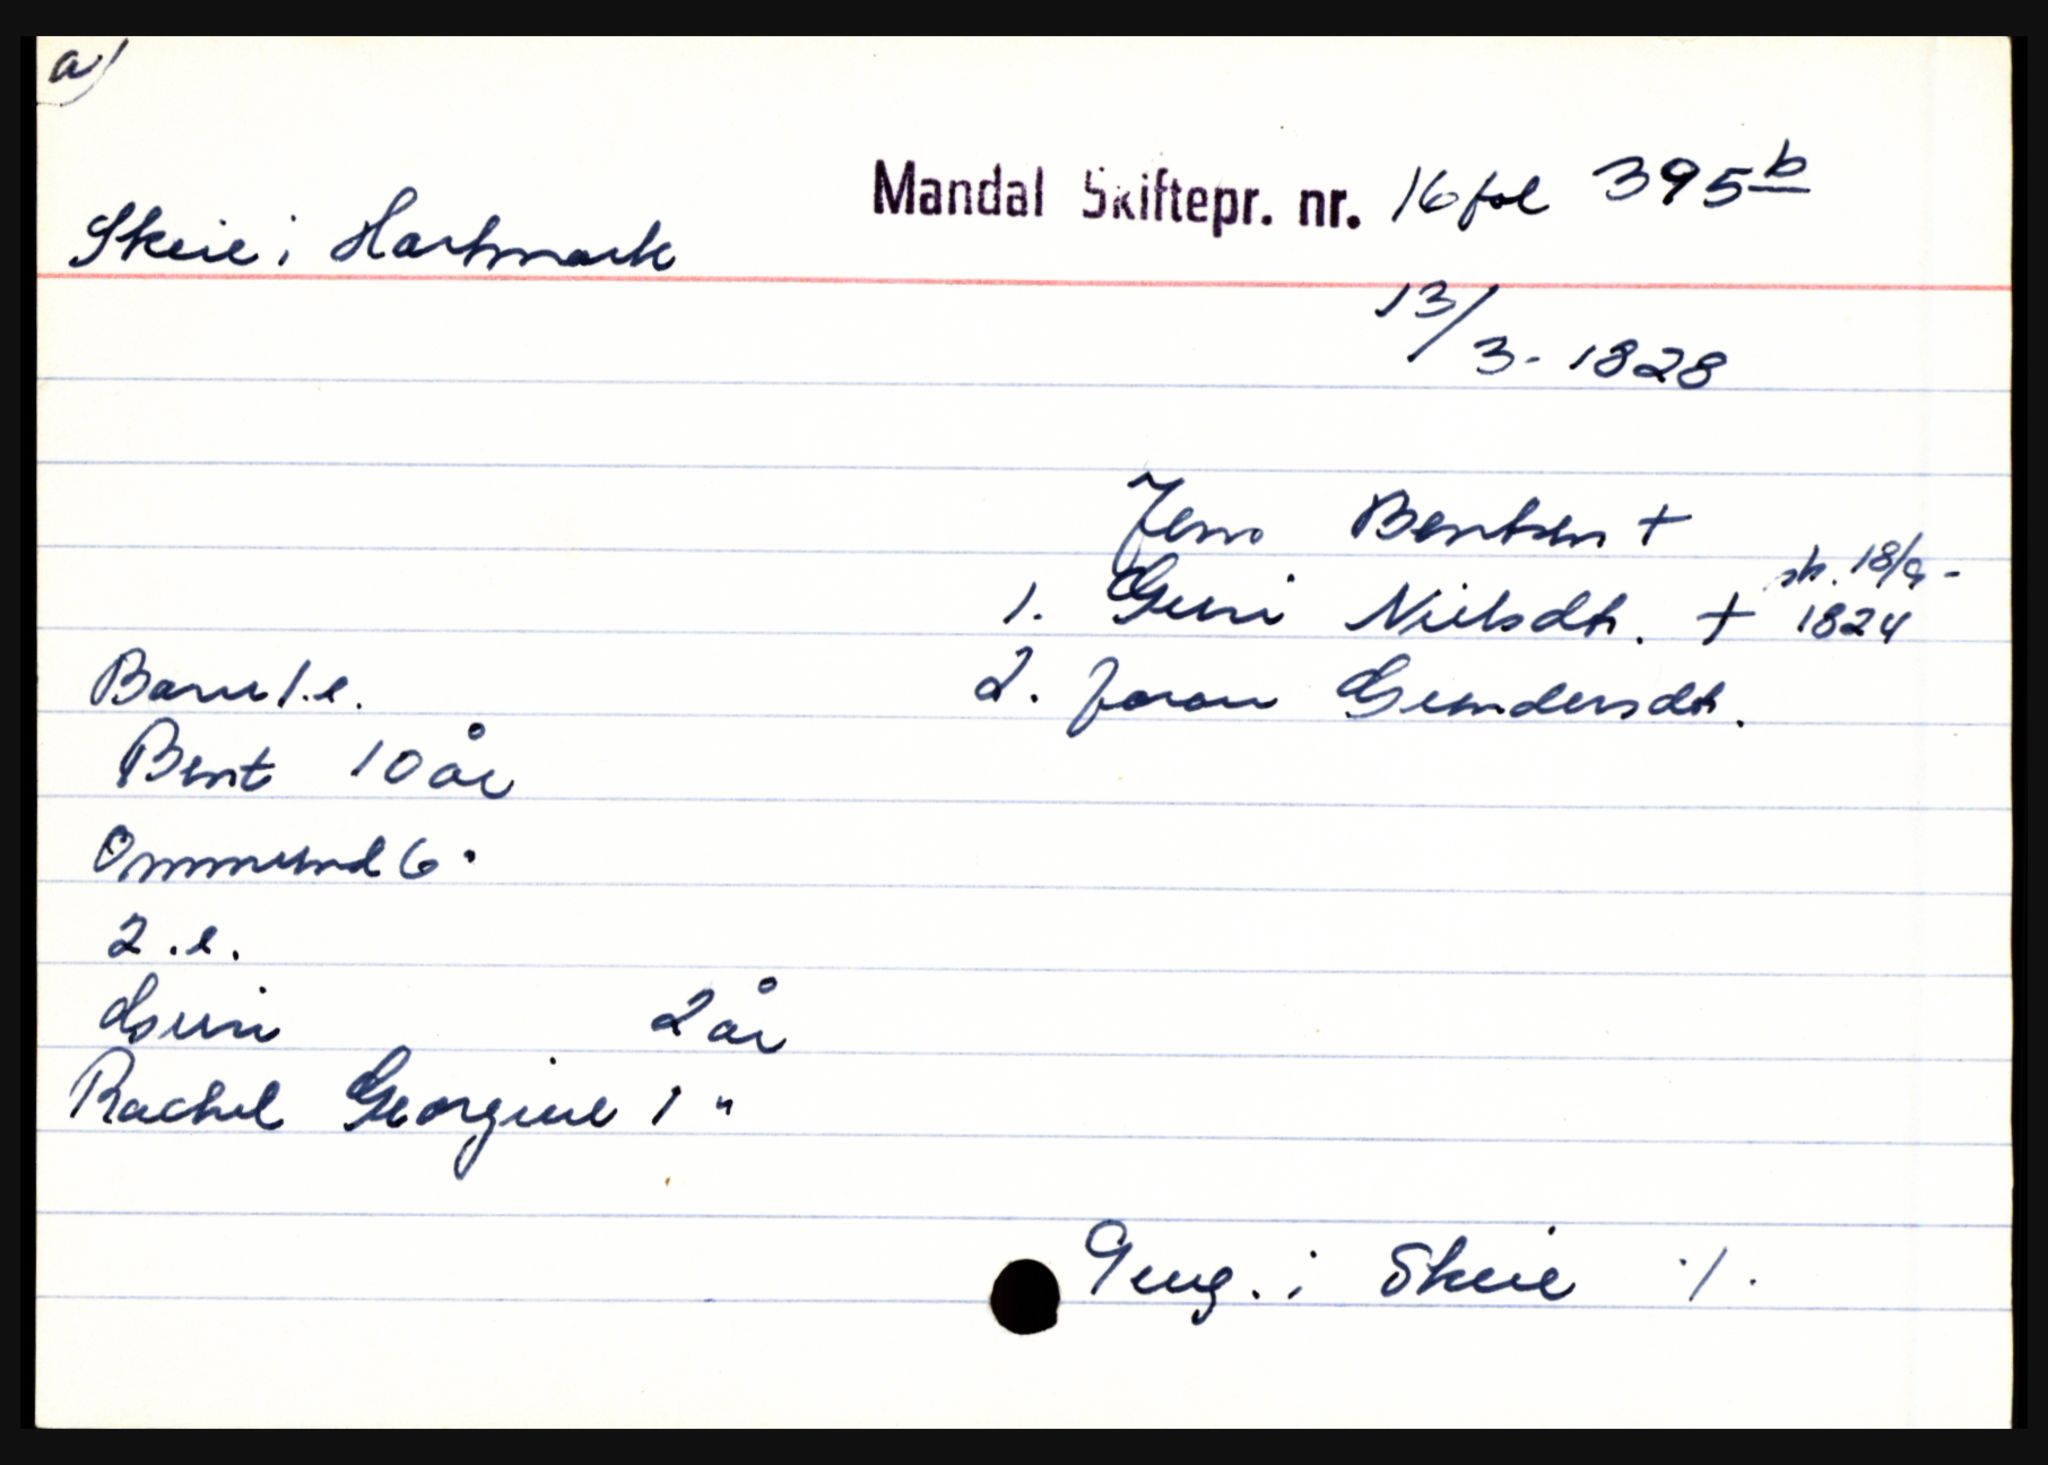 a)
Mandal Skiftepr. nr. 16 fol 395 b
Skeie i Hartmark
13/3-1828
Jens Bentsen +
1. Guri Nielsdtr. + sk. 18/9-1824
2. Joran Gundersdtr.
Barn 1.e.
Bent 10 år
Ommund 6 "
2.e.
Guri 2 år
Rachel Georgine 1 "
i Skeie ./.